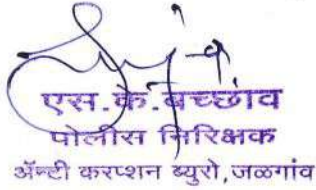 एस.के.बच्छाव
पोलीस निरिक्षक
ॲन्टी करप्शन ब्युरो,जळगांव